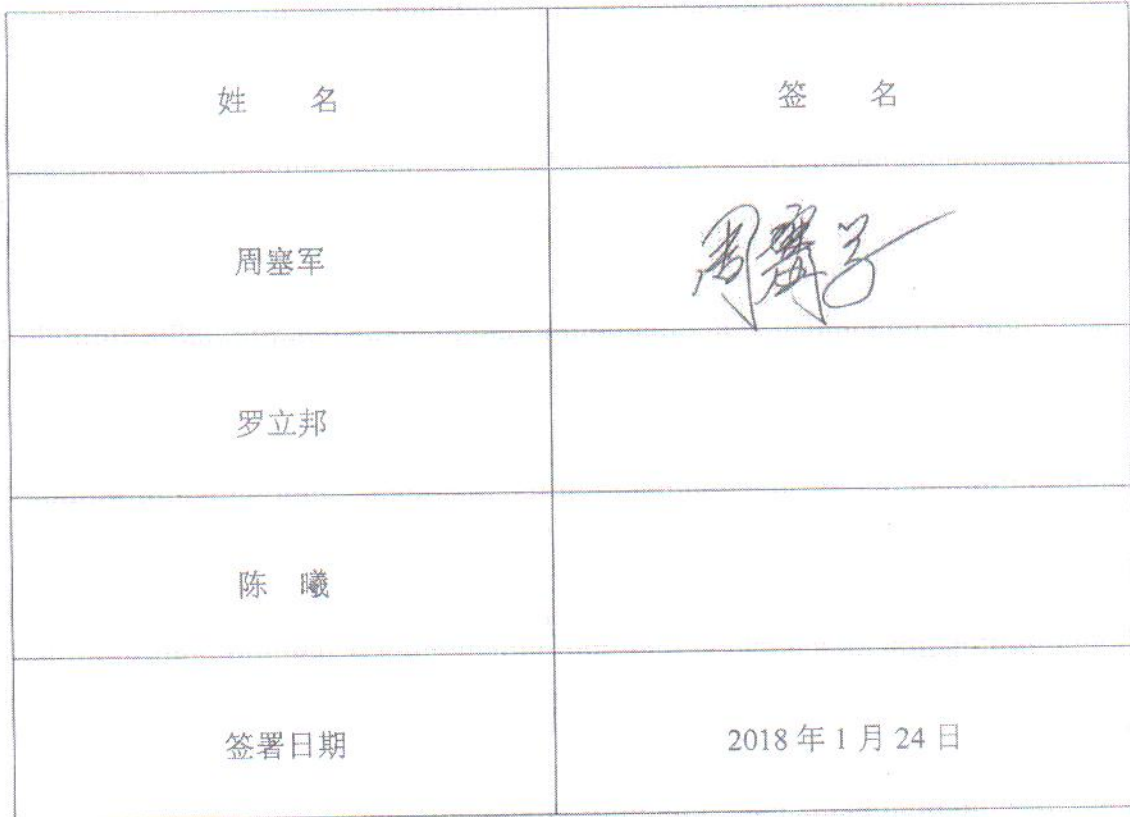 姓 名 签 名
周塞军 周赛军
罗立邦
陈 曦
签署日期 2018年1月24日